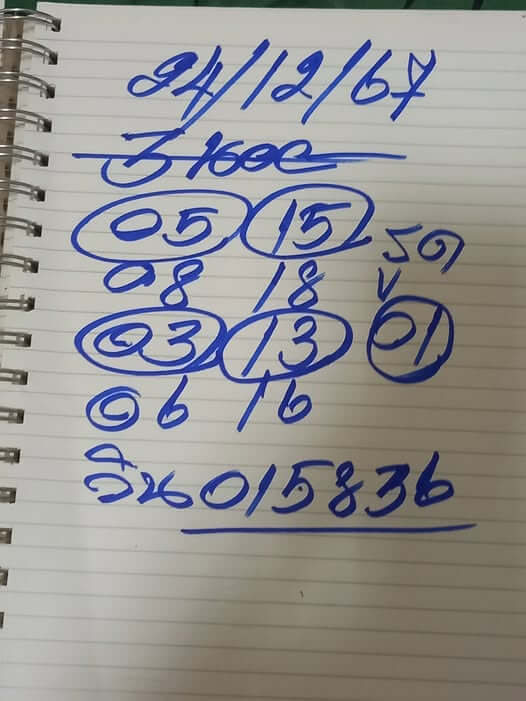 24/12/67
05 15 รูด
08 18
03 13 01
06 16
วิน 015836